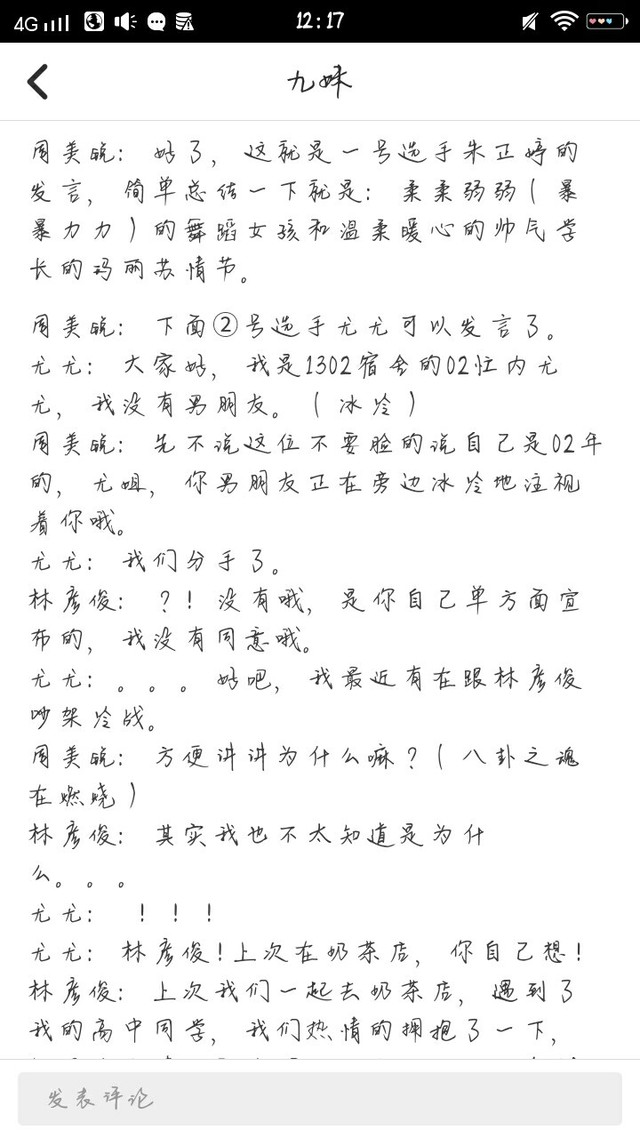 4G
12:17
九妹
周美皖：好了，这就是一号选手朱正婷的
发言，简单总结一下就是：柔柔弱弱（暴
暴力力）的舞蹈女孩和温柔暖心的帅气学
长的玛丽苏情节。
周美皖：下面②号选手尤尤可以发言了。
尤尤：大家好，我是1302宿舍的02忙内尤
尤，我没有男朋友。（冰冷）
周美皖：先不说这位不要脸的说自己是02年
的，尤姐，你男朋友正在旁边冰冷地注视
着你哦。
尤尤：我们分手了。
林彦俊：？！没有哦，是你自己单方面宣
布的，我没有同意哦。
尤尤：。。。好吧，我最近有在跟林彦俊
吵架冷战。
周美皖：方便讲讲为什么嘛？（八卦之魂
在燃烧）
林彦俊：其实我也不太知道是为什
么。。。
尤尤：！！！
尤尤：林彦俊！上次在奶茶店，你自己想！
林彦俊：上次我们一起去奶茶店，遇到了
我的高中同学，我们热情的拥抱了一下，
发表评论